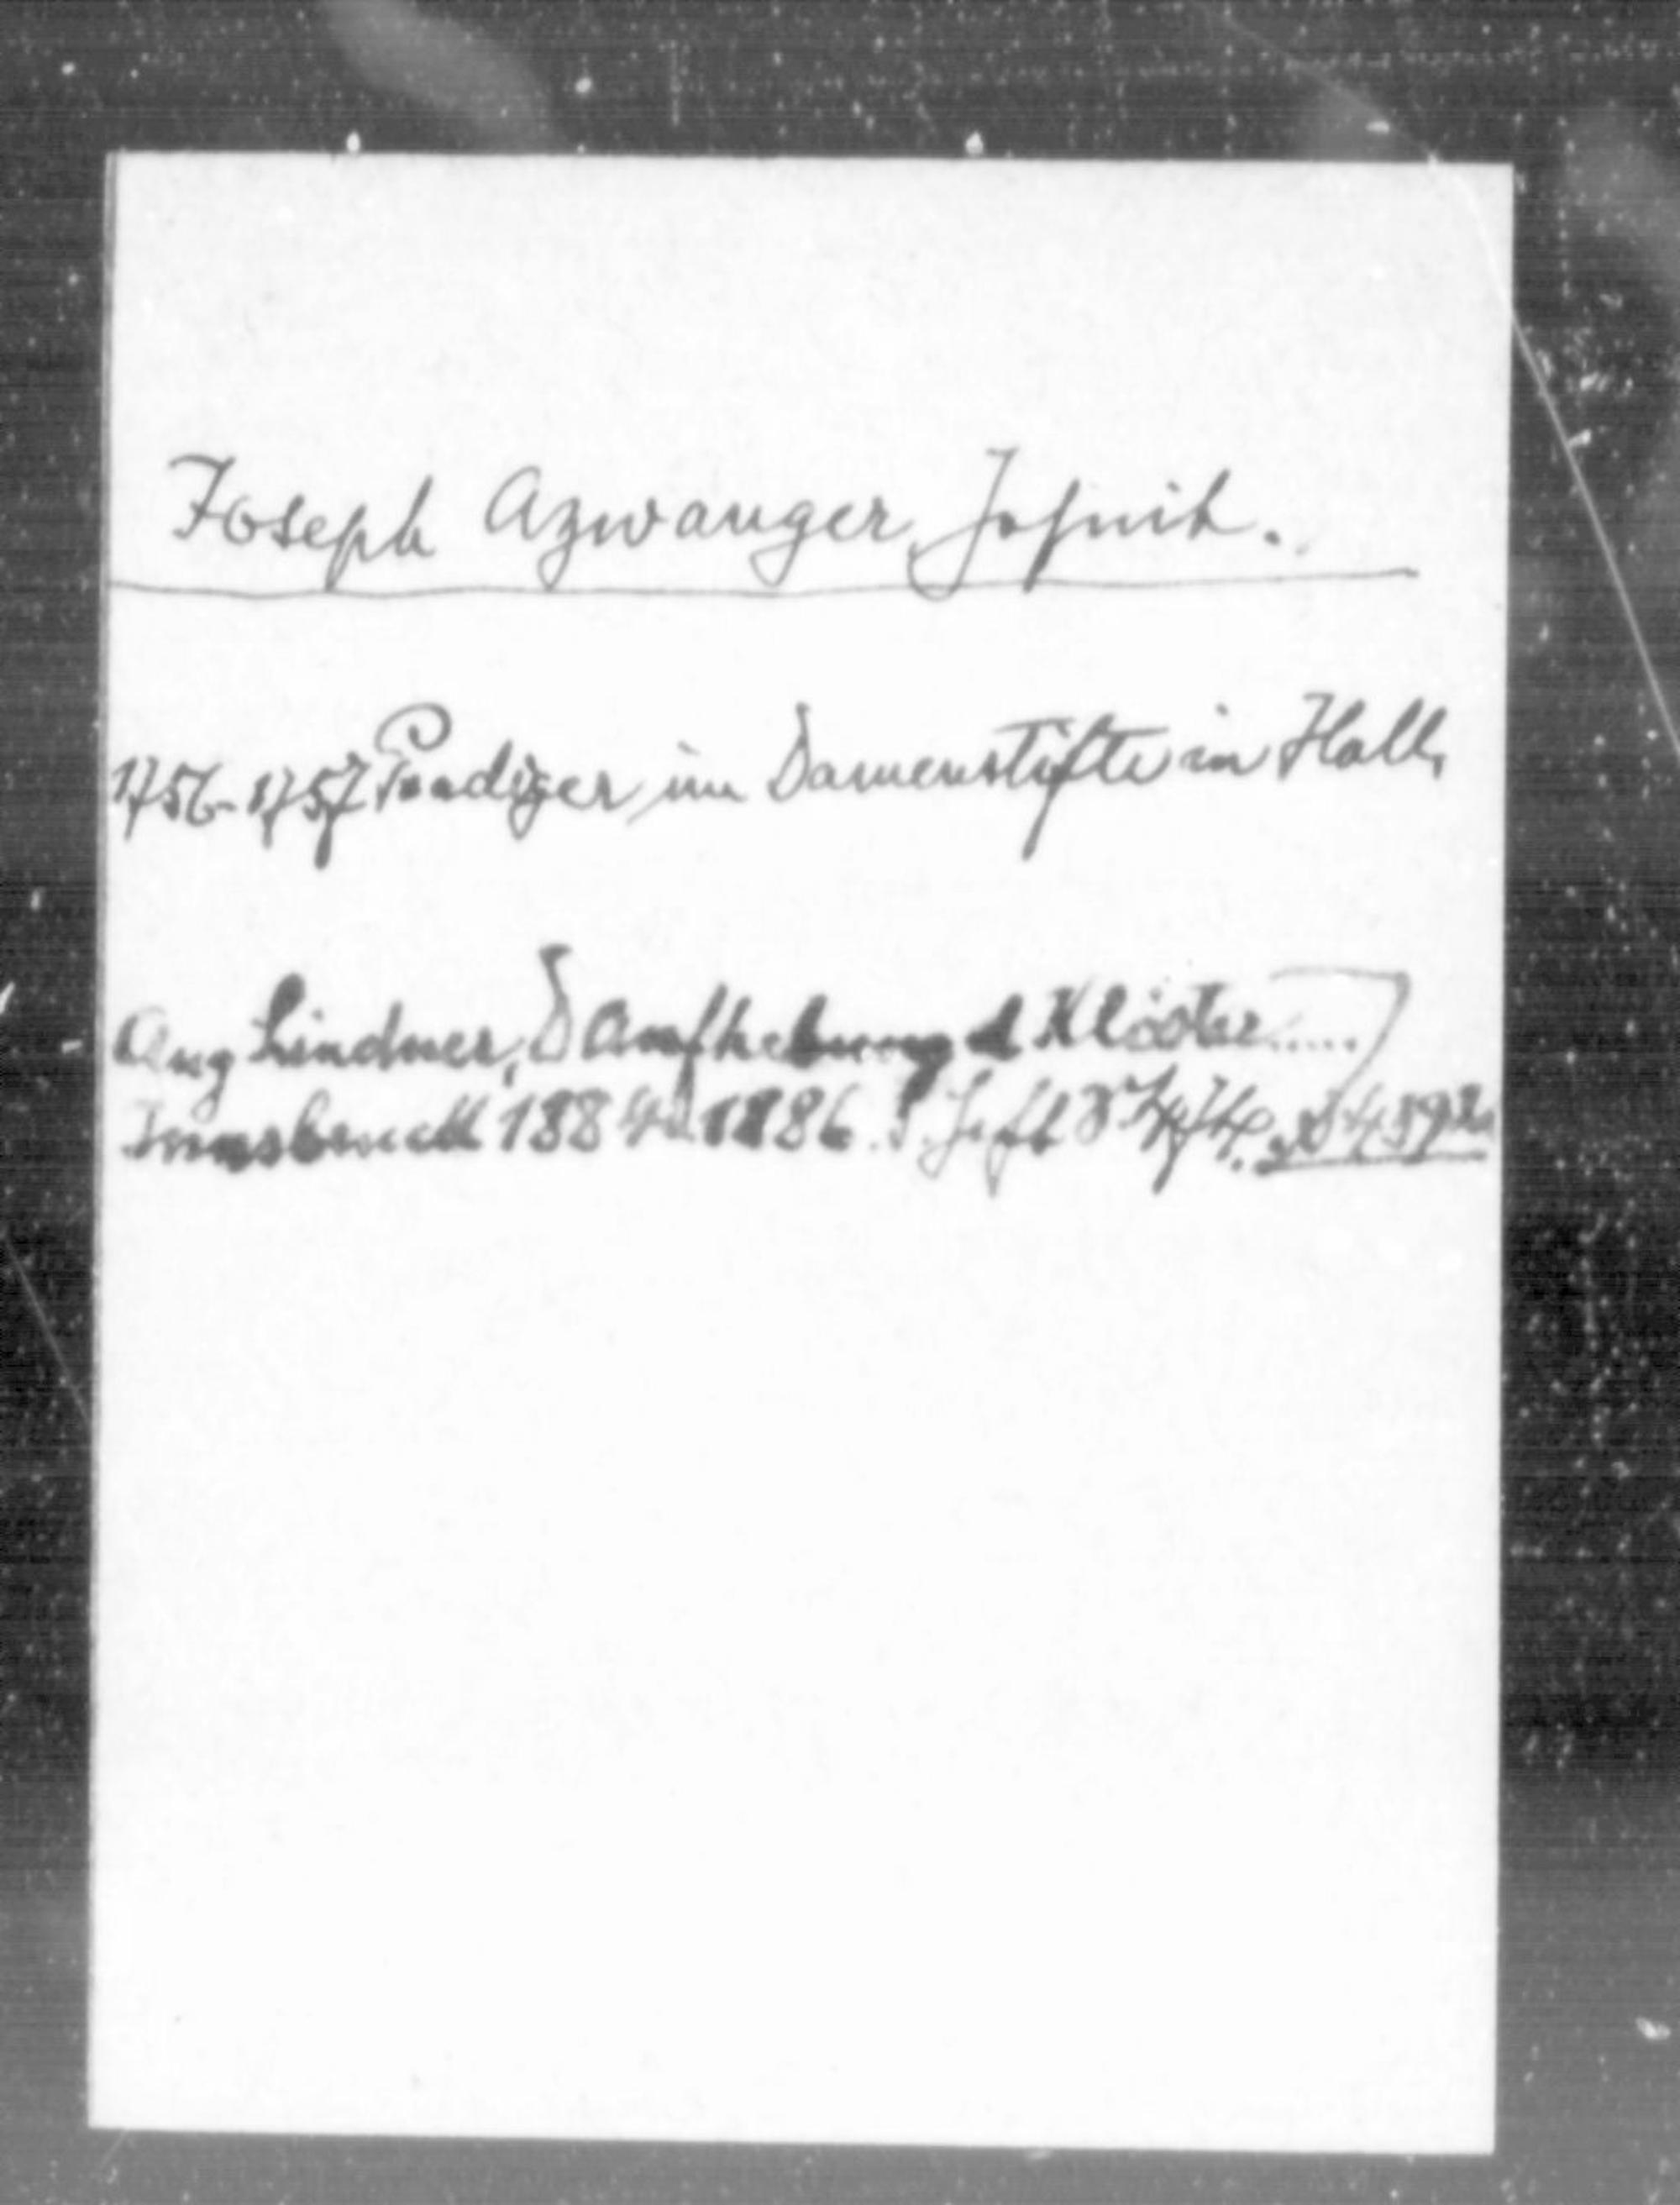 Joseph Azwanger, Jesuit.
1756-1757 Prediger im Damenstifte in Hall,
Aug Lindner, D Aufhebung d Klöster.....
Innsbruck 1884-1886. Heft